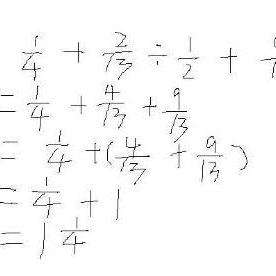 1/4 + 2/13 ÷ 1/2 +
= 1/4 + 4/13 + 9/13
= 1/4 + (4/13 + 9/13)
= 1/4 + 1
= 1 1/4